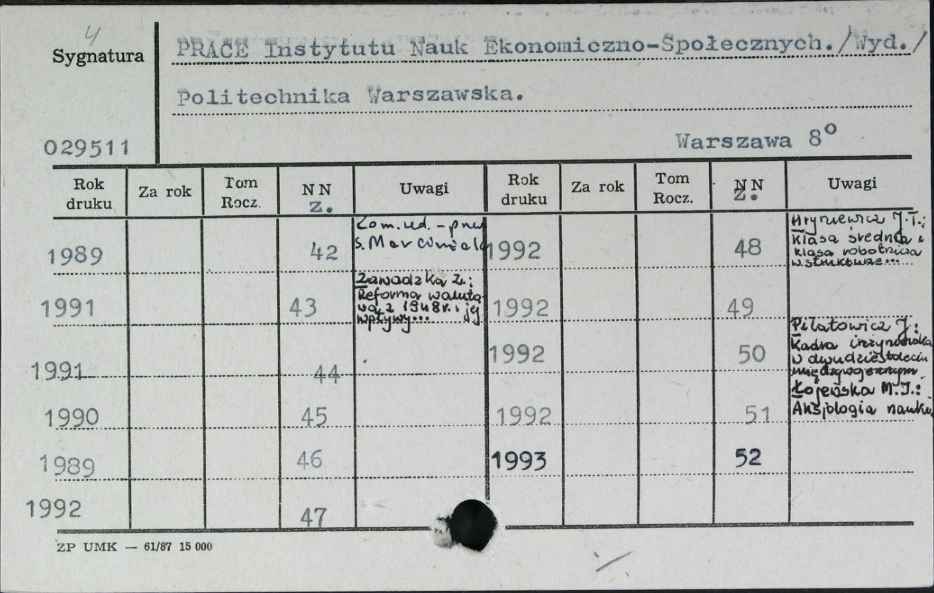 4
Sygnatura
PRACE Instytutu Nauk Ekonomiczno-Społecznych./Wyd./
Politechnika Warszawska.
029511
Warszawa 8°
Rok druku Za rok Tom Rocz. NN Z. Uwagi Rok druku Za rok Tom Rocz. NN Z. Uwagi
1989 42 Kom. red. - prze
S. Marciniak
1992 48 Hryniewicz J.T.:
Klasa średnia i
klasa robotnicza
w strukturze...
1991 43 Zawadzka Z.:
Reforma waluto-
wa z 1948r. i jej
wpływ...
1992 49
1991 44
1992 50 Piłatowicz J.:
Kadra inżynierska
w dwudziestoleciu
międzywojennym.
1990 45
1992 51 Łojewska M.I.:
Aksjologia nauki
1989 46
1993 52
1992 47
ZP UMK — 61/87 15 000